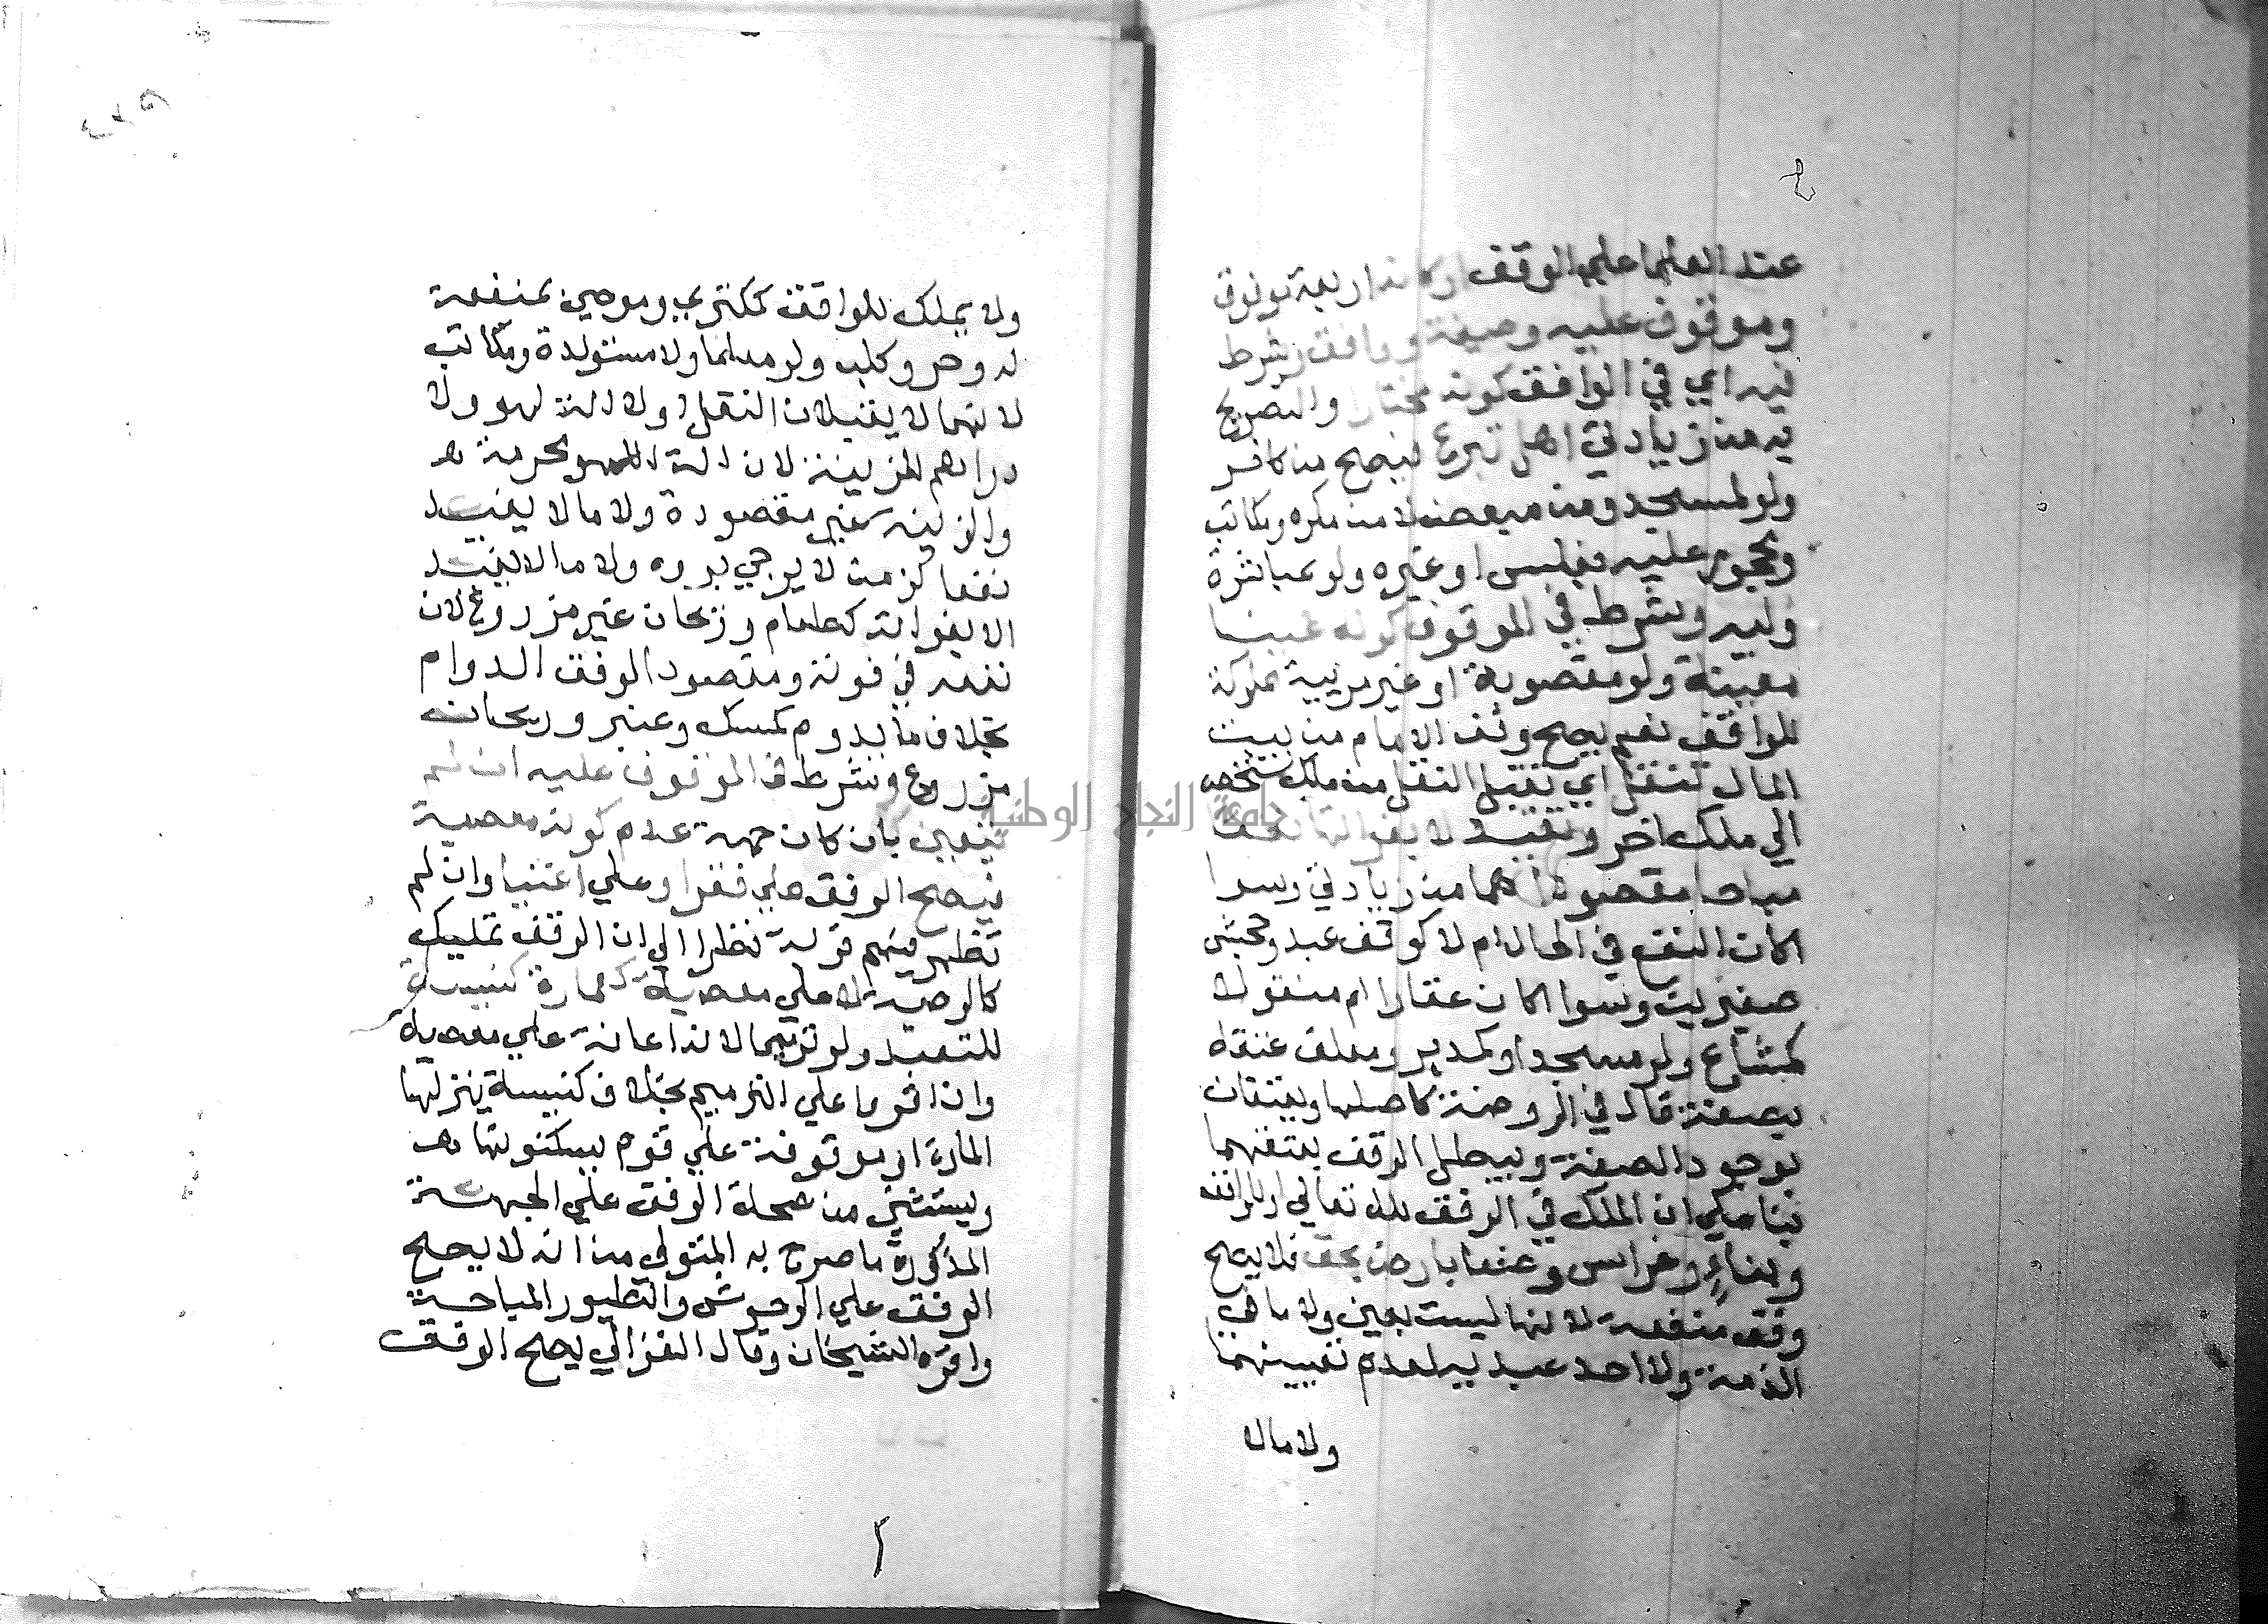 عند العلما علي الوقف اركانه اربعة موقوف
وموقوف عليه وصيغة وواقف وشرط
فيه اي في الواقف كونه مختارا والتصريح
به من زيادتي اهل تبرع فيصح من كافر
ولو لمسجد ومن مبعض لا من مكره ومكاتب
ومحجور عليه بفلس او غيره ولو بمباشرة
وليه وشرط في الموقوف كونه عينا
معينة ولو مغصوبة او غير مرئية مملوكة
للواقف نعم يصح وقف الامام من بيت
المال تنقل اي تقبل النقل من ملك شخص
الي ملك اخر وتفيد لا بفواتها نفعا
مباحا مقصودا هما من زيادتي وسوا
اكان النفع في الحال ام لا كوقف عبد وجحش
صغيرين وسوا اكان عقارا ام منقولا
كمشاع ولو مسجدا وكمدبر ومعلق عتقه
بصفة قال في الروضة كاصلها ويعتقان
بوجود الصفة ويبطل الوقف بعتقهما
بنا علي ان الملك في الوقف لله تعالي او للواقف
وبناءٍ وغراس وضعا بارض بحق فلا يصح
وقف منفعة لانها ليست بعين ولا ما في
الذمة ولا احد عبديه لعدم تعيينهما
ولا مالا
ولا يملك للواقف كمكتري وموصي بمنفعة
له وحر وكلب ولو معلما ولا مستولدة ومكاتب
لانهما لا يقبلان النقل ولا الة لهو ولا
دراهم للزينة لان الة اللهو محرمة
والزينة غير مقصودة ولا ما لا يفيد
نفعا كزمن لا يرجي بروه ولا ما لا يفيد
الا بفواته كطعام وريحان غير مزروع لان
نفعه في فوته ومقصود الوقف الدوام
بخلاف ما يدوم كمسك وعنبر وريحان
مزروع وشرط في الموقوف عليه ان لم
يتعين بان كان جهة عدم كونه معصية
فيصح الوقف علي فقرا وعلي اغنيا وان لم
تظهر فيهم قربة نظرا الي ان الوقف تمليك
كالوصية لا علي معصية كعمارة كنيسة
للتعبد ولو ترميما لانه اعانة علي معصية
وان اقروا علي الترميم بخلاف كنيسة ينزلها
المارة او موقوفة علي قوم يسكنونها
ويستثني من صحة الوقف علي الجهة
المذكورة ما صرح به المتولي من انه لا يصح
الوقف علي الوحوش والطيور المباحة
واقره الشيخان وقال الغزالي يصح الوقف
جامعة النجاح الوطنية